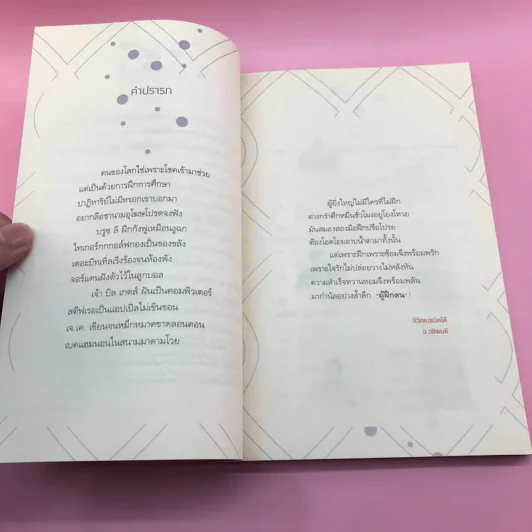 คำปรารภ
คนของโลกใช่เพราะโชคเข้ามาช่วย
แต่เป็นด้วยการฝึกการศึกษา
ปาฏิหาริย์ไม่มีหรอกเขาบอกมา
อยากลือชานามอุโฆษโปรดจงฟัง
บรูซ ลี ฝึกกังฟูเหมือนงูฉก
ไทเกอร์กกกอล์ฟกองเป็นของขลัง
เดอะบีทเทิ่ลเริงร้องจนท้องพัง
จอร์แดนฝังตัวไว้ในลูกบอล
เจ้า บิล เกตส์ ฝันเป็นคอมพิวเตอร์
สตีฟเธอเป็นแอปเปิลไม่เขินขอน
เจ.เค. เขียนจนหมึกหมาดขาดลอนคอน
เบคแฮมนอนในสนามมาตามโวย
ผู้ยิ่งใหญ่ไม่มีใครที่ไม่ฝึก
ต่างกรำศึกหมื่นชั่วโมงอยู่โยงโหวย
มันสมองสองมือฝึกปรือโปรย
ต้องโอดโอยอาบน้ำตามาทั้งนั้น
แต่เพราะฝึกเพราะซ้อมจึงพร้อมพรัก
เพราะใจรักไม่ปล่อยวางไม่ห่างหัน
ความสำเร็จหวานหอมจึงพร้อมพลัน
มากำนัลอย่างล้ำลึก "ผู้ฝึกตน" !
ชีวิตเนรมิตได้
ว.วชิรเมธี